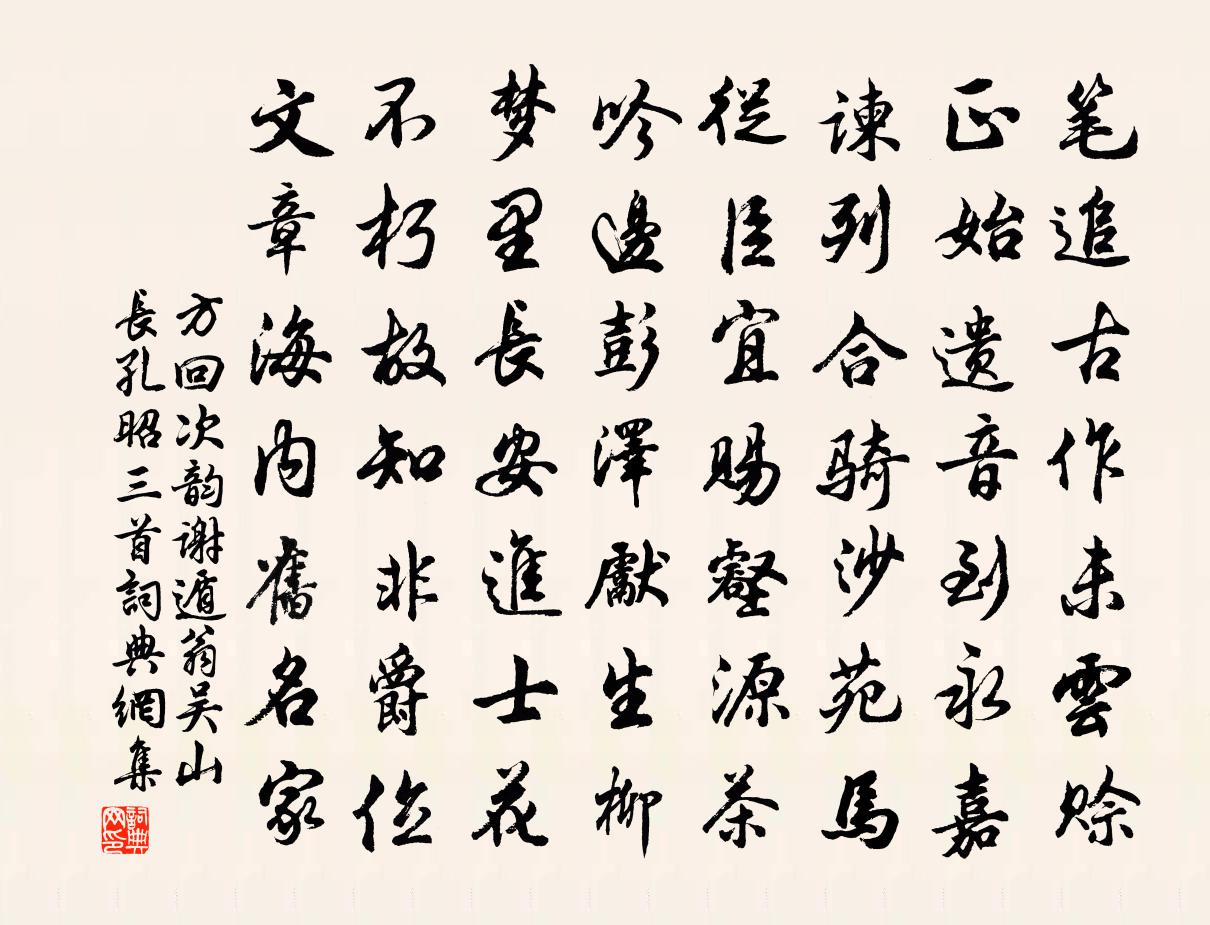 笔追古作未雲赊
正始遗音到永嘉
諫列合騎沙苑馬
從臣宜賜壑源茶
吟邊彭澤獻生柳
梦里長安進士花
不朽故知非爵位
文章海内舊名家
方回次韵谢遁翁吴山
長孔昭三首詞典網集
詞典